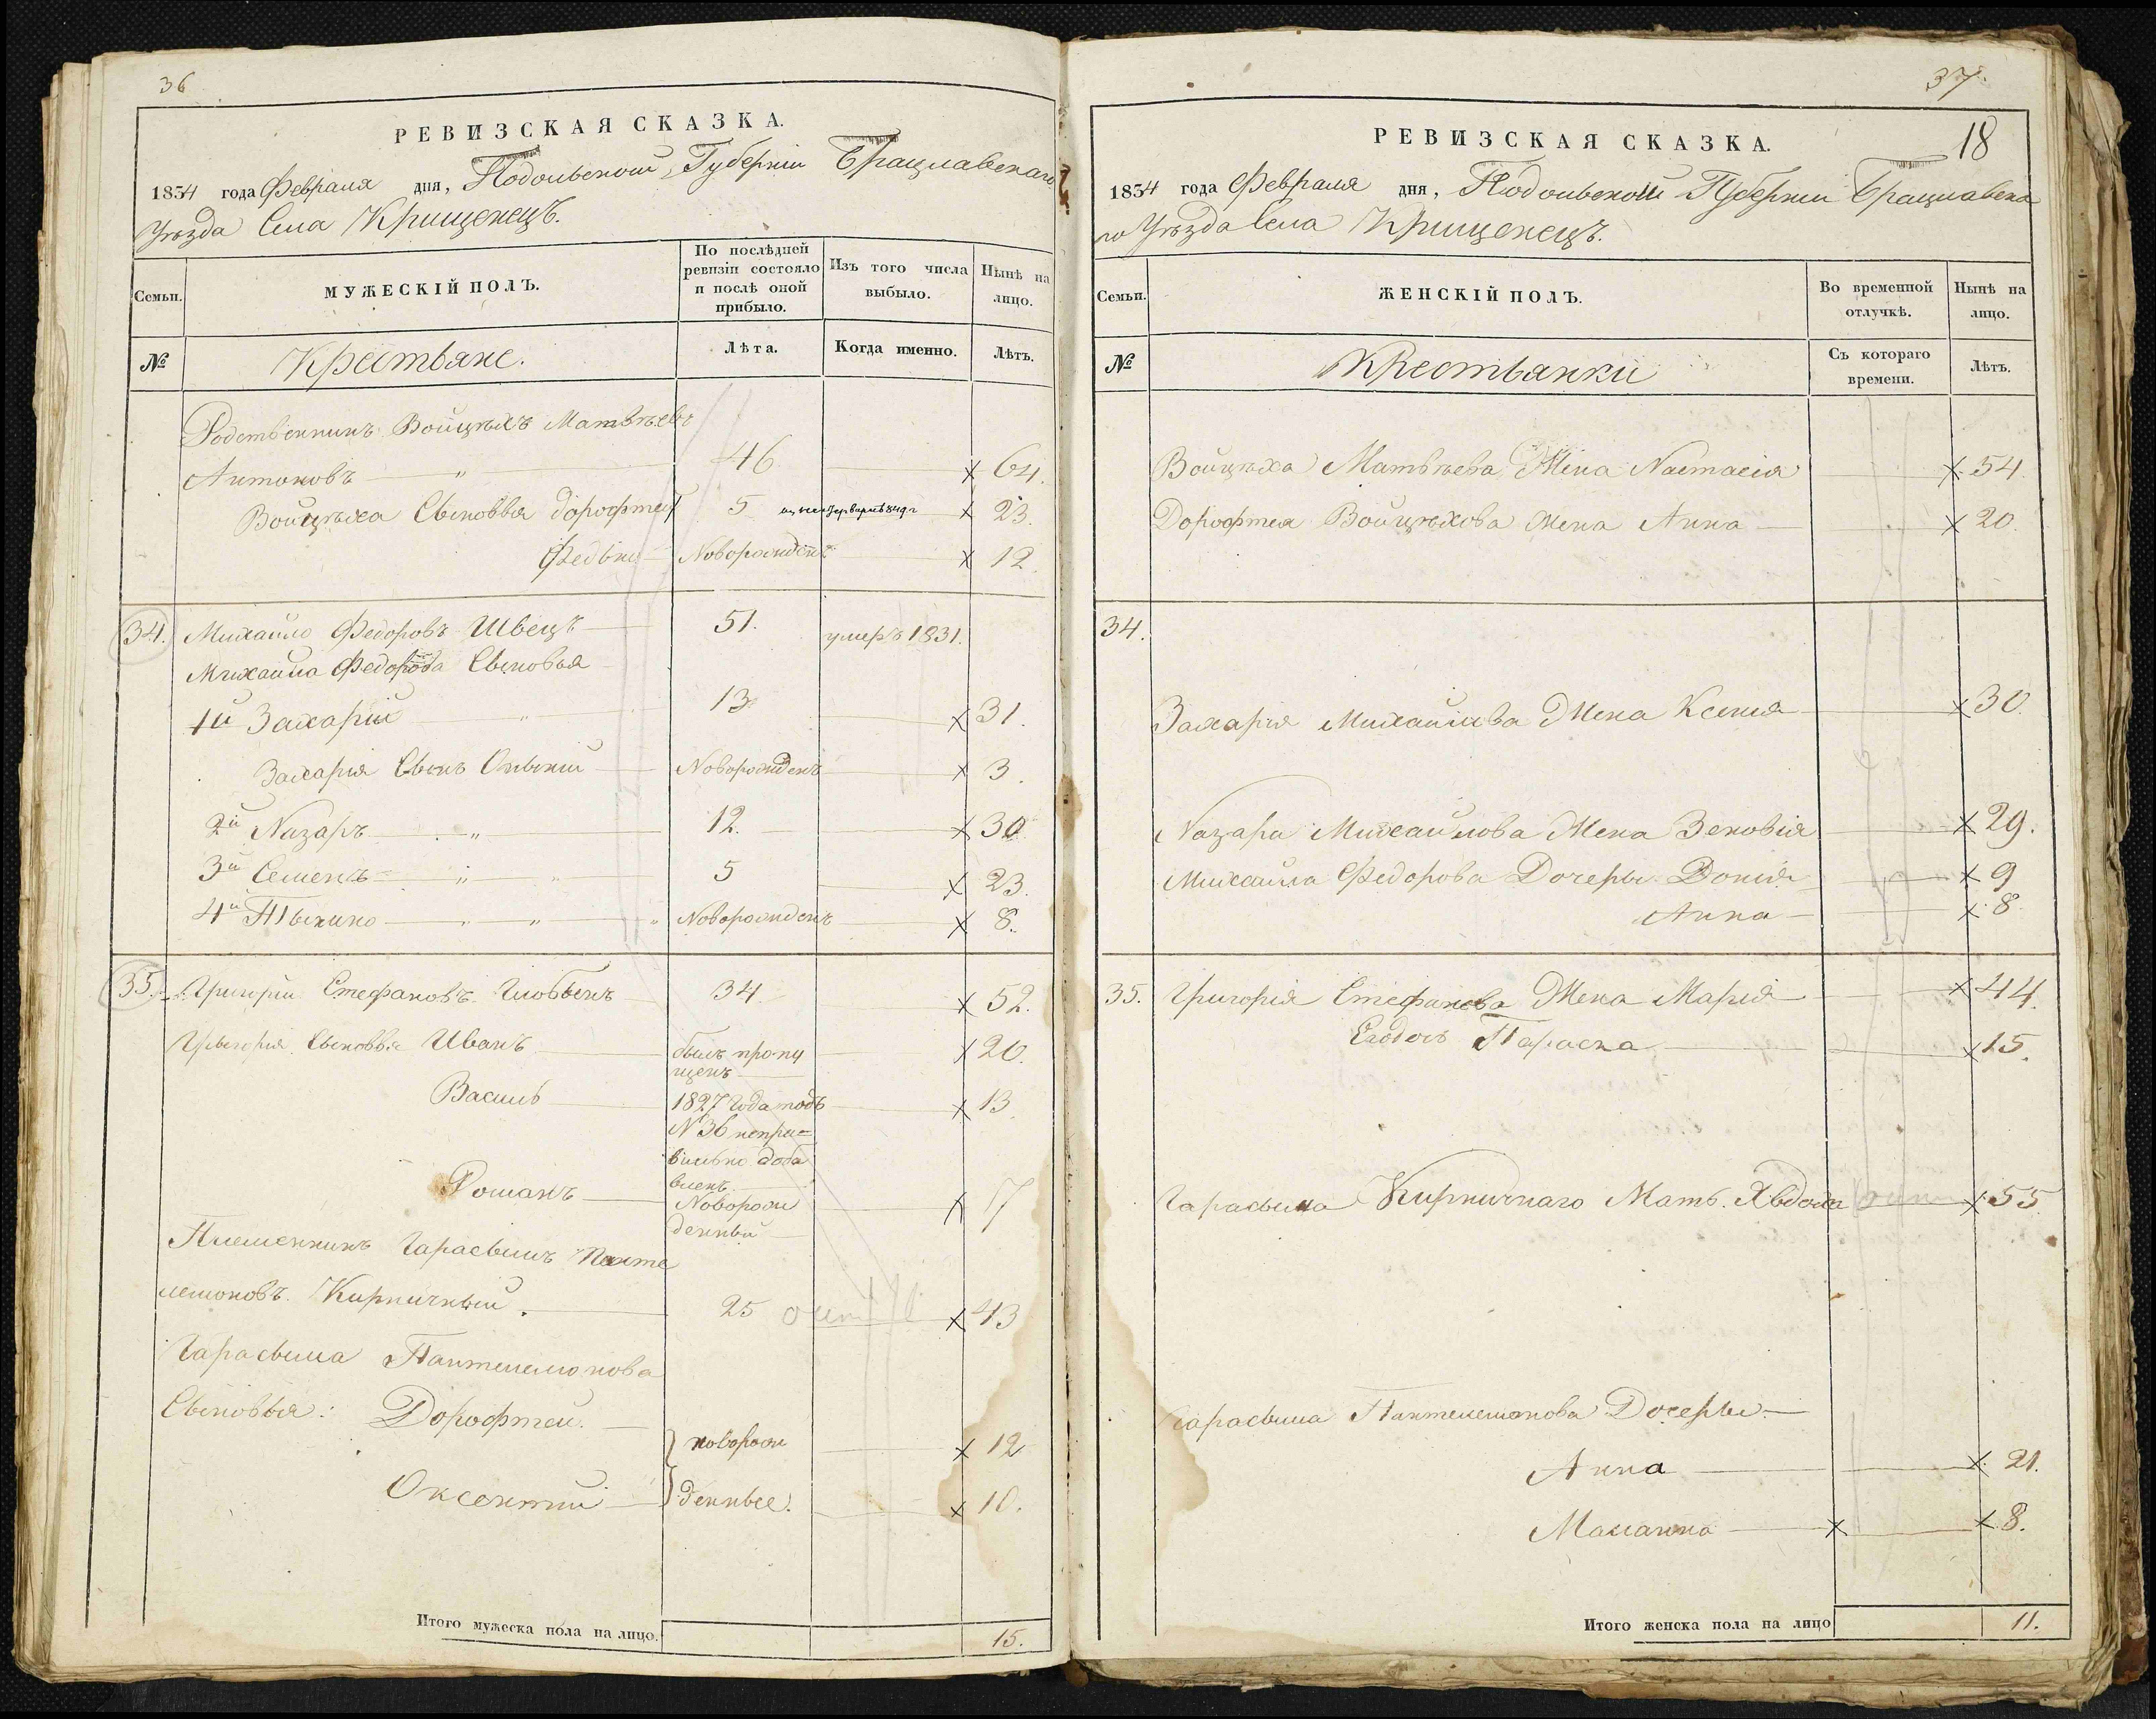 36
РЕВИЗСКАЯ СКАЗКА.
1834 года Февраля дня, Подольской Губерніи Брацлавскаго
Уѣзда Села Крищенецъ.
Семьи.
МУЖЕСКІЙ ПОЛЪ.
По послѣдней ревизіи состояло и послѣ оной прибыло.
Изъ того числа выбыло.
Нынѣ на лицо.
№
Крестьяне.
Лѣта.
Когда именно.
Лѣтъ.
Родственникъ Войцѣхъ Матвѣевъ
Антоновъ — " 46 х 64.
Войцѣха Сыновья Дорофтей 5 х 23.
Федько Новорожденъ х 12.
34. Михайло Федоровъ Швецъ 51. умеръ 1831.
Михайла Федорова Сыновья
1й Захарій " 13 х 31.
Захарія Сынъ Новорожденъ х 3.
2й Назаръ " 12. х 30
3й Семенъ " " 5 х 23.
4й " " " Новорожденъ х 8.
35. Григорій Стефановъ 34 х 52.
Григорія Сыновья Иванъ былъ пропу х 20.
щенъ
Василь 1827 года подъ х 13
N 36 непра=
вильно доба
вленъ
Романъ Новорож х 7
денный
Племенникъ Гарасымъ Панте
лемоновъ Кирпичный. 25 х 43
Гарасыма Пантелемонова
Сыновья: Дорофтей. новорож х 12
Оксентий денные. х 10.
Итого мужеска пола на лицо. 15.
37.
18
РЕВИЗСКАЯ СКАЗКА.
1834 года Февраля дня, Подольской Губерніи Брацлавска
го Уѣзда Села Крищенецъ.
Семьи.
ЖЕНСКІЙ ПОЛЪ.
Во временной отлучкѣ.
Нынѣ на лицо.
№
Крестьянки
Съ котораго времени.
Лѣтъ.
Войцѣха Матвѣева Жена Настасія х 54
Дорофтея Войцѣхова жена Анна х 20.
34.
Захарія Михайлова Жена Ксенія х 30
Назара Михайлова Жена Зеновія х 29.
Михайла Федорова Дочеры х 9
Анна х 8
35. Григорія Стефанова Жена Марія х 44.
Параска х 15.
Гарасыма Кирпичнаго Мать х 55
Гарасыма Пантелемонова Дочеры
Анна х 21.
Маланка х х 8.
Итого женска пола на лицо 11.